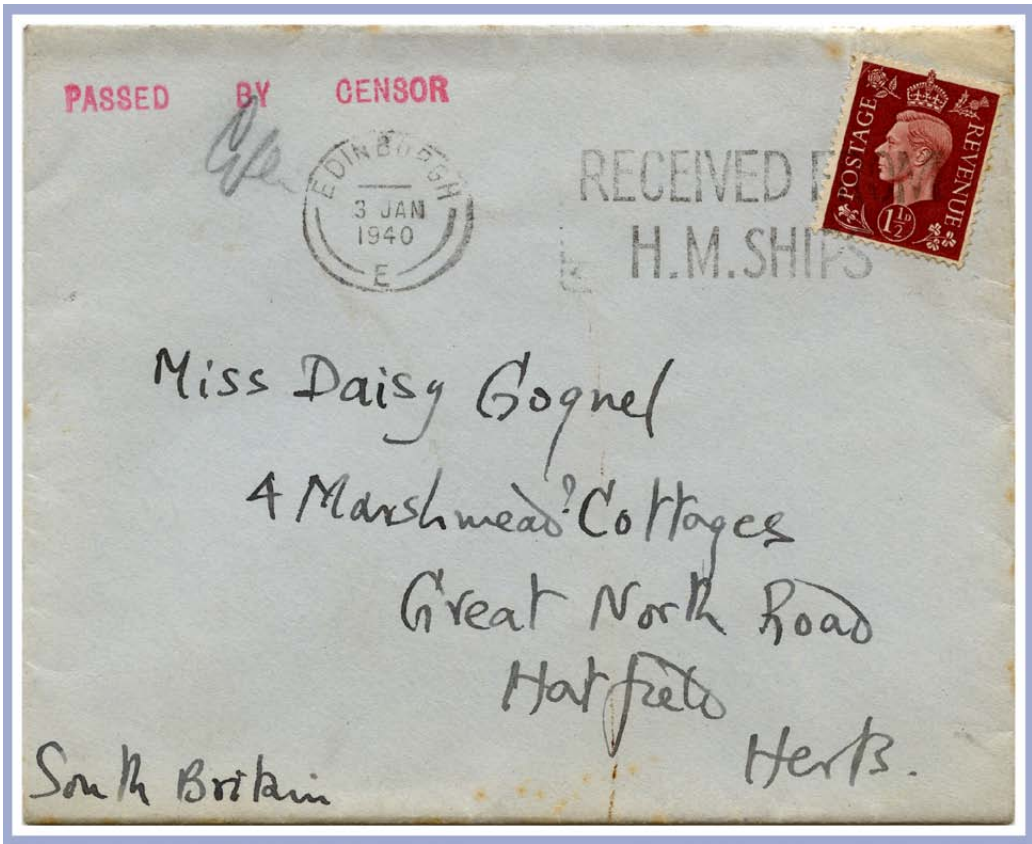 PASSED BY CENSOR
EDINBURGH
3 JAN
1940
E
RECEIVED FROM
H.M. SHIPS
POSTAGE REVENUE
1½D
Miss Daisy Gognel
4 Marshmead? Cottages
Great North Road
Hatfield
Herts.
South Britain